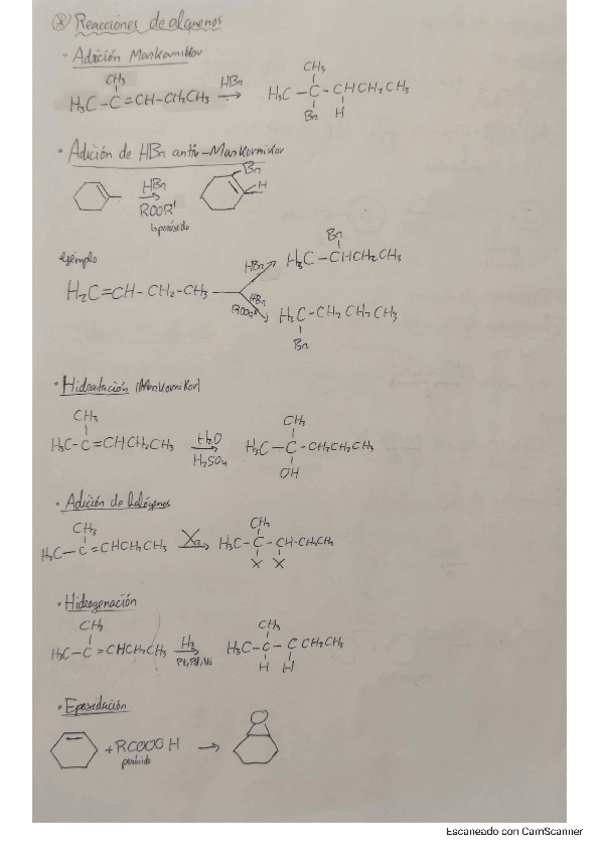 Reacciones de alquenos
· Adición Markovnikov
CH₃
H₃C-C=CH-CH₂CH₃ HBr → H₃C-C-CHCH₂CH₃
CH₃
Br H
· Adición de HBr anti-Markovnikov
HBr
ROOR'
peróxido
Br
H
ejemplo
H₂C=CH-CH₂-CH₃
HBr
Br
H₃C-CHCH₂CH₃
HBr
ROOR'
H₂C-CH₂CH₂CH₃
Br
· Hidratación (Markovnikov)
CH₃
H₃C-C=CHCH₂CH₃ H₂O
H₂SO₄
CH₃
H₃C-C-CH₂CH₂CH₃
OH
· Adición de halógenos
CH₃
H₃C-C=CHCH₂CH₃ X₂ →
CH₃
H₃C-C-CH-CH₂CH₃
X X
· Hidrogenación
CH₃
H₃C-C=CHCH₂CH₃ H₂
Pt, Pd, Ni
CH₃
H₃C-C-C CH₂CH₃
H H
· Epoxidación
+ RCOOOH →
perácido
O
Escaneado con CamScanner